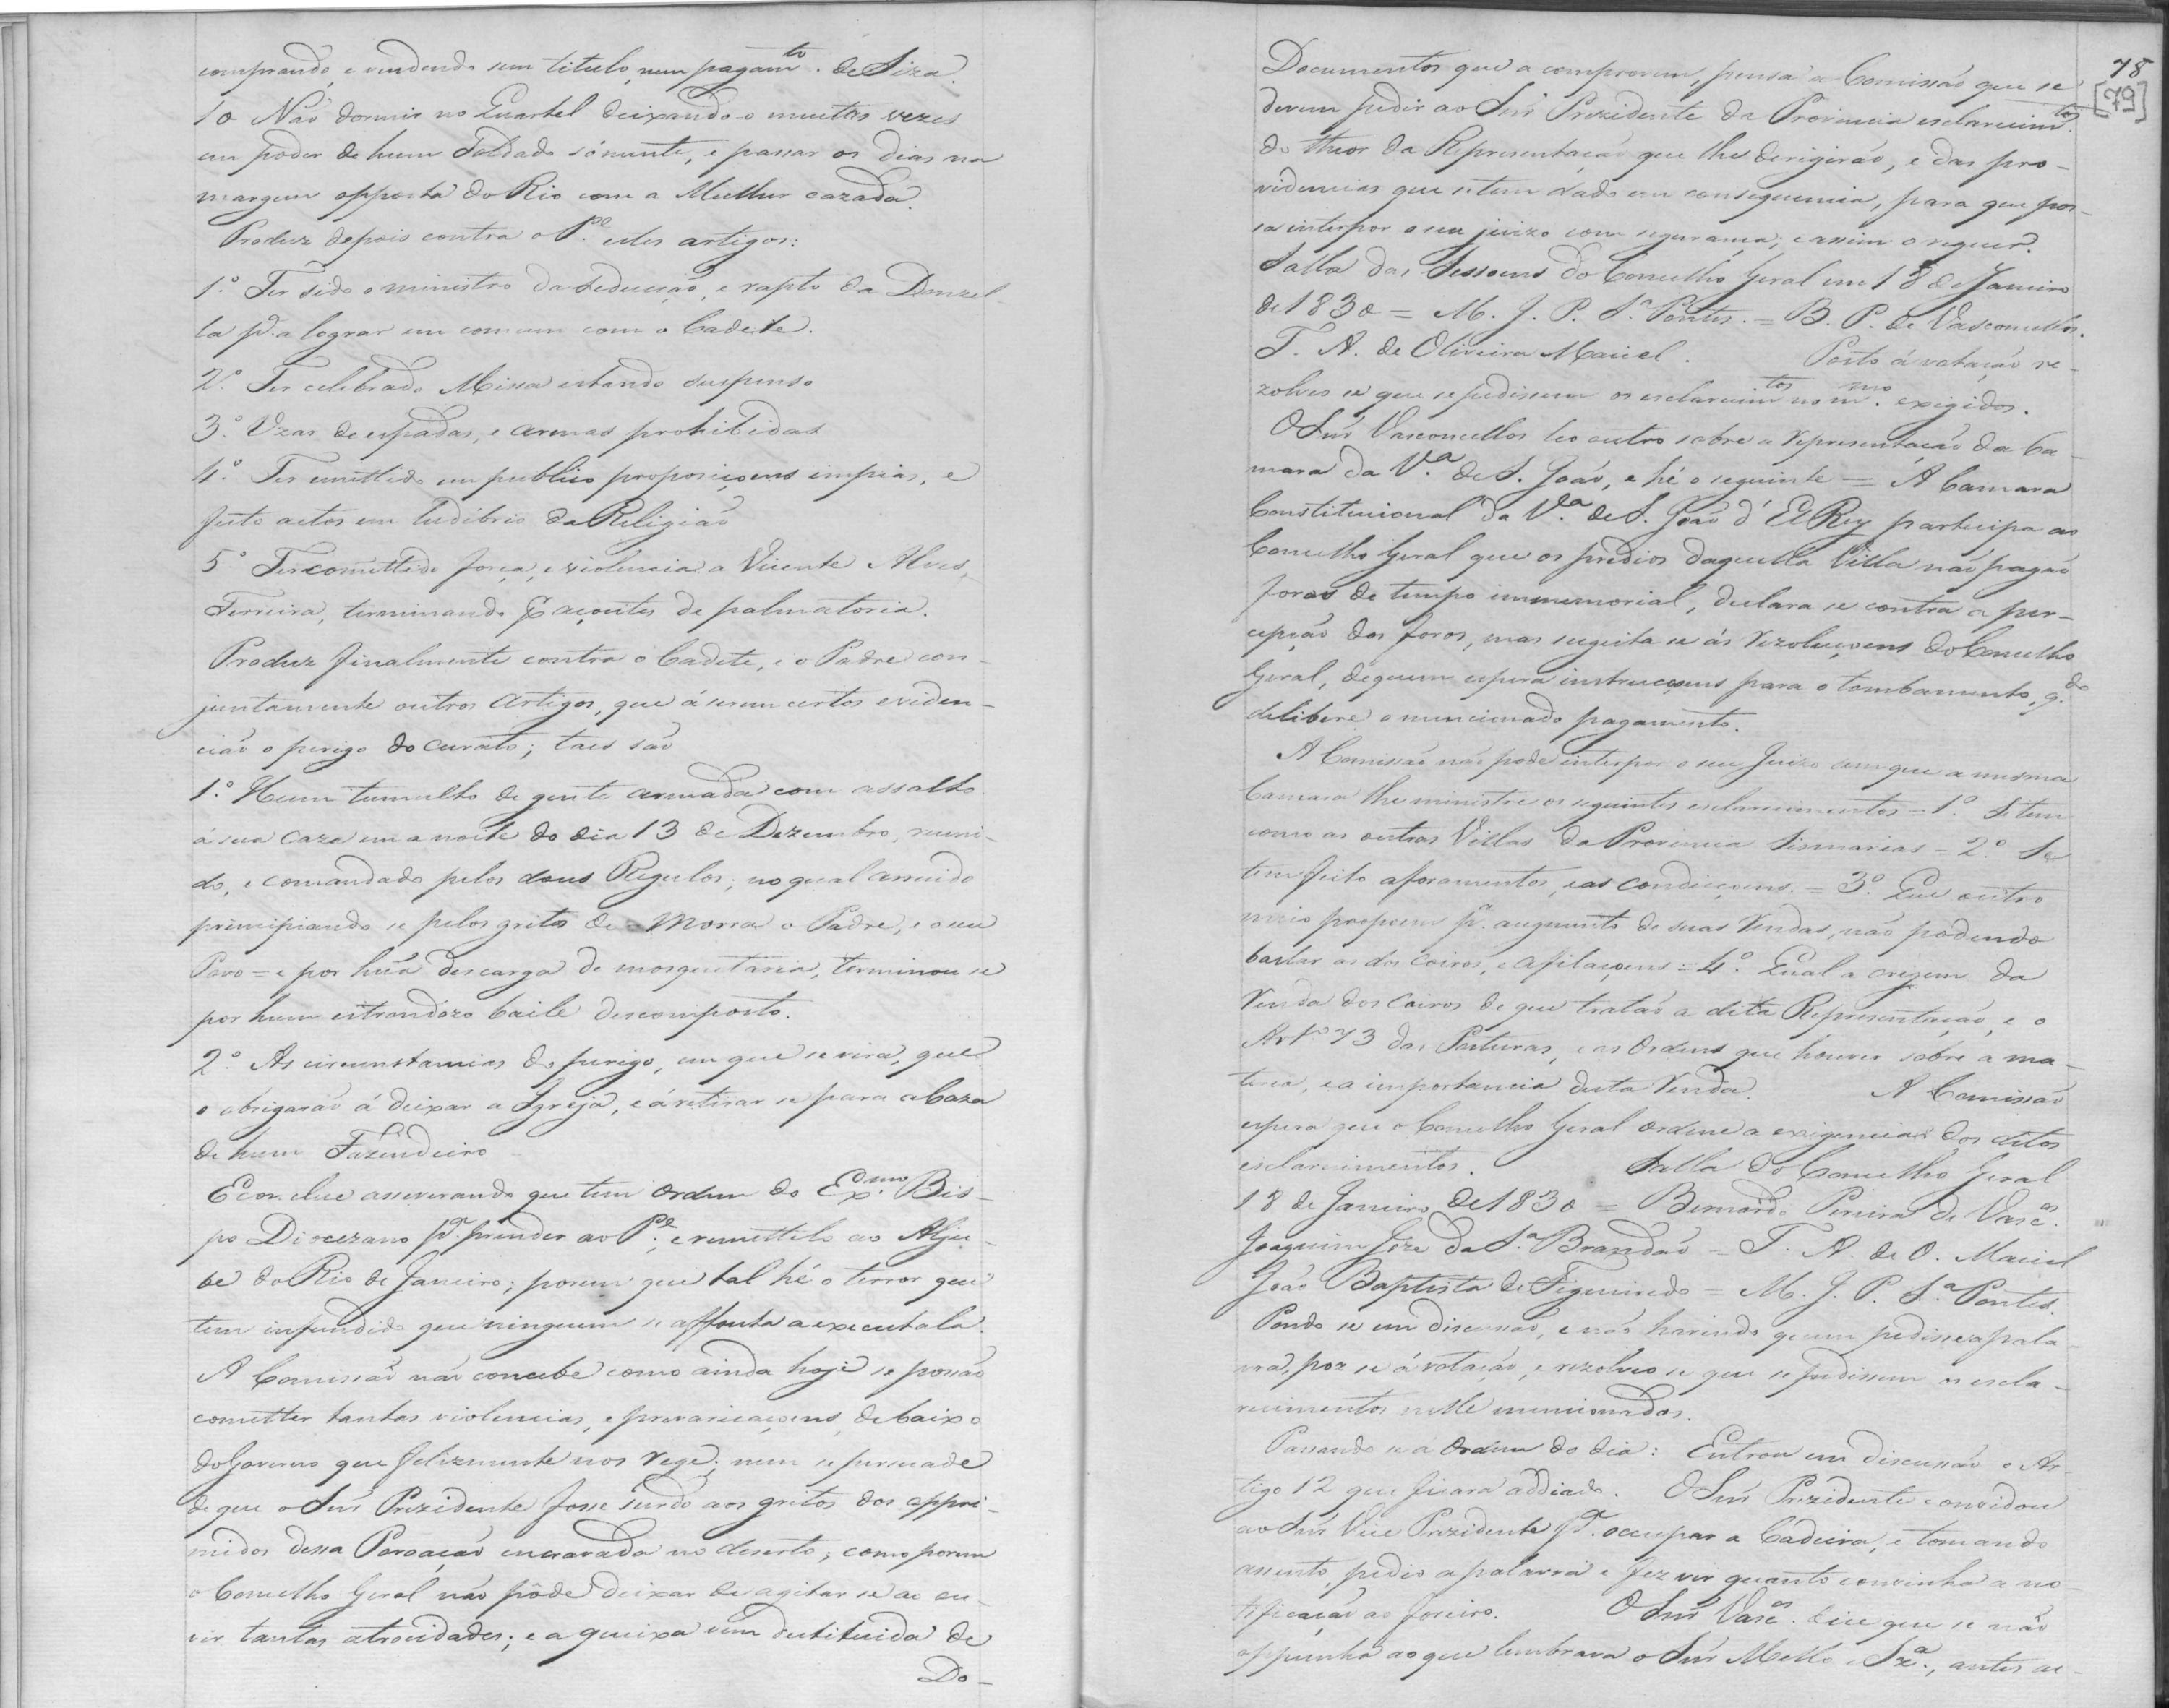 comprando, e vendendo sem titulo, nem pagam.to de Siza.
10 Não dormir no Quartel deixando-o muitas vezes
em poder de hum Soldado sómente, e passar os dias na
margem opposta do Rio com a Mulher cazada.
Produz depois contra o P.e estes artigos:
1.º Ter sido o ministro da seducção, e rapto da Donzel-
la p.a lograr em comum com o Cadete.
2.º Ter celebrado Missa estando suspenso
3.º Uzar de espadas, e armas prohibidas
4.º Ter emettido em publico proposiçoens impias, e
feito actos em ludibrio da Religião
5.º Ter comettido força, e violencia a Vicente Alves
Ferreira, terminando p açoutes de palmatoria.
Produz finalmente contra o Cadete, e o Padre con-
juntamente outros artigos, que á serem certos eviden-
cião o perigo do curato; taes são
1.º Hum tumulto de gente armada com assalto
á sua caza em a noite do dia 13 de Dezembro, reuni-
do, e comandado pelos dous Regulos; no qual arruido
principiando se pelos gritos de = Morra o Padre, e o seu
Povo = e por hũa descarga de mosquetaria, terminou se
por hum estrondozo baile descomposto.
2.º As circunstancias do perigo, em que se vira, que
o obrigarão á deixar a Igreja, e á retirar se para a Caza
de hum Fazendeiro
E conclue asseverando que tem ordem do Ex.mo Bis-
po Diocezano p.a prender ao P.e, e remettelo ao Alju-
be do Rio de Janeiro; porem que tal hé o terror que
tem infundido que ninguem se affouta a executala.
A Comissão não concebe como ainda hoje se possão
cometter tantas violencias, e prevaricaçoens debaixo
do Governo que felizmente nos rege; nem se persuade
de que o Snr Prezidente fosse surdo aos gritos dos oppri-
midos dessa Povoação encravada no deserto; como porem
o Conselho Geral não póde deixar de agitar se ao ou-
vir tantas atrocidades; e a queixa vem destituida de
Do-
78
[79]
Documentos que a comprovem, pensa a Comissão que se
devem pedir ao Snr Prezidente da Provincia esclarecim.tos
do theor da Representação que lhe derigirão, e das pro-
videncias que se tem dado em consequencia, para que pos-
sa interpor o seu juizo com segurança; e assim o requer.
Salla das Sessoens do Conselho Geral em 18 de Janeiro
de 1830 = M. J. P. S.a Pontes. = B. P. de Vasconcellos.
T. A. de Oliveira Maciel. Posto á votação re-
zolveo se que se pedissem os esclarecim.tos no m.mo exigidos.
O Snr Vasconcellos leo outro sobre a representação da Ca-
mara da V.a de S. João, e hé o seguinte = A Camara
Constitucional da V.a de S. João d'El Rey participa ao
Conselho Geral que os predios daquella Villa não pagão
foros de tempo immemorial, declara se contra a per-
cepção dos foros, mas sugeita se ás rezoluçoens do Conselho
Geral, de quem espera instrucçoens para o tombamento, q.do
delibere o mencionado pagamento.
A Comissão não pode interpor o seu Juizo sem que a mesma
Camara lhe ministre os seguintes esclarecimentos = 1.º Se tem
como as outras Villas da Provincia Sismarias = 2.º Se
tem feito aforamentos, e as condiçoens. = 3.º Que outro
meio propoem p.a augmento de suas rendas, não podendo
bastar as dos Coiros, e afilaçoens = 4.º Qual a origem da
renda dos Coiros de que tratão a dita Representação, e o
Art.º 73 das Posturas, e as Ordens que houver sobre a ma-
teria, e a importancia desta renda. A Comissão
espera que o Conselho Geral ordene a exigencia dos ditos
esclarecimentos. Salla do Conselho Geral
18 de Janeiro de 1830 = Bernardo Pereira de Vasc.os
Joaquim Joze da S.a Brandão = T. A. de O. Maciel
João Baptista de Figueiredo = M. J. P. S.a Pontes.
Pondo se em discussão, e não havendo quem pedisse a pala-
vra, poz se á votação, e rezolveo se que se pedissem os escla-
recimentos nelle mencionados.
Passando se á Ordem do dia: Entrou em discussão o Ar-
tigo 12 que ficara addiado. O Snr Prezidente convidou
ao Snr Vice Prezidente p.a occupar a Cadeira, e tomando
assento, pedio a palavra e fez ver quanto convinha a no-
tificação ao foreiro. O Snr Vasc.os dice que se não
oppunha ao que lembrava o Snr Mello e Sz.a, antes ac-